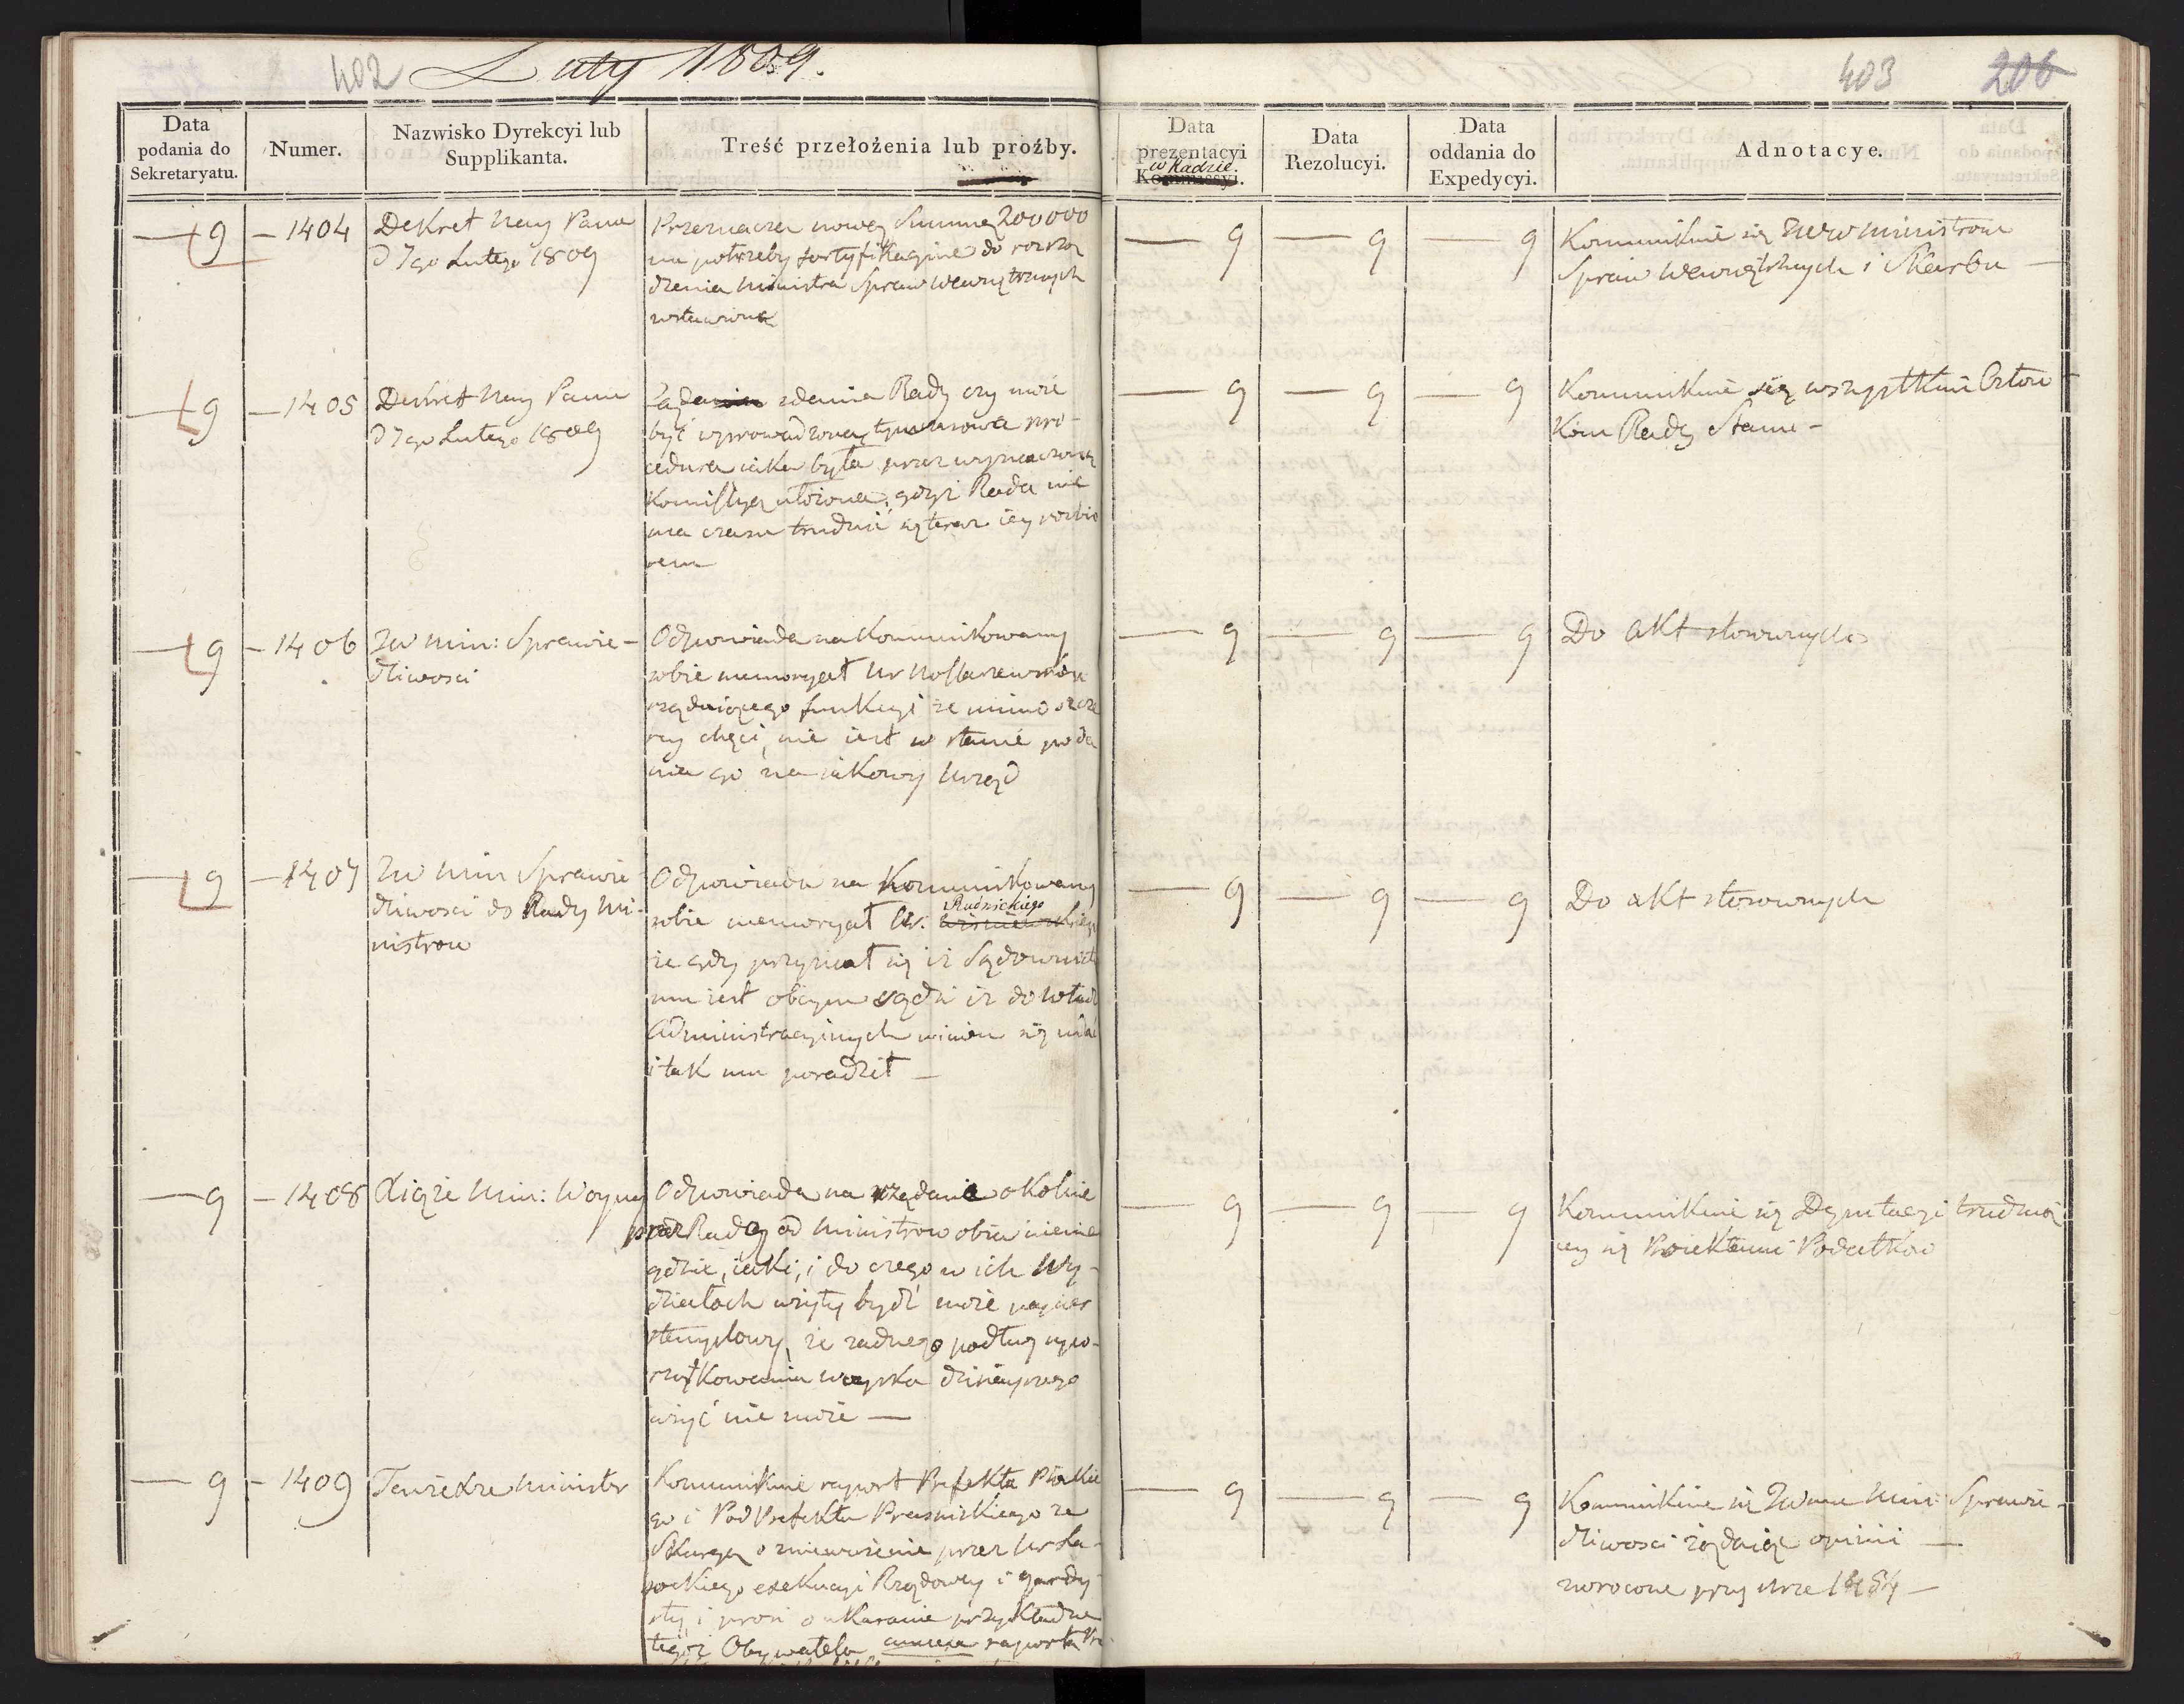 402
Luty 1809.
403
206
Data podania do Sekretaryatu.
Numer.
Nazwisko Dyrekcyi lub Supplikanta.
Treść przełożenia lub proźby.
Data prezentacyi w Radzie. Kommissyi.
Data Rezolucyi.
Data oddania do Expedycyi.
Adnotacye.
9 — 1404
Dekret Nay Pana
d 7go Lutego 1809
Przeznacza nową Summę 200000
na potrzeby fortyfikacyine do rozrzą
dzenia Ministra Spraw Wewnętrznych
— 9 — 9 — 9
Kommunikuie się JWW Ministrom
Spraw Wewnętrznych i Skarbu —
9 — 1405
Dekret Nay Pana
d 7go Lutego 1809
zdania Rady czy może
być wprowadzoną tymczasowa pro-
cedura iaka była przez wyznaczoną
Kommissyą ułożona, gdyż Rada nie
ma czasu trudnić się teraz iey rozbio
rem
— 9 — 9 — 9
Kommunikuie się wszystkim Człon
kom Rady Stanu —
9 — 1406
JW Min: Sprawie-
dliwosci
Odpowiada na kommunikowany
sobie memoryał Ur
żądaiącego funkcyi że mimo szcze
rey chęci, nie iest w stanie poda
nia go na iakowy Urząd
— 9 — 9 — 9
Do Akt stosownych
9 — 1407
JW Min Sprawie
dliwosci do Rady Mi-
nistrow
Odpowiada na Kommunikowany
sobie memoryał Ur. Rudnickiego
że gdy przyznał się iż Sądownict
mu iest obcym sądzi iż do Władz
Administracyinych winien się udać
i tak mu poradził —
— 9 — 9 — 9
Do akt stosownych
— 9 — 1408
Xiąże Min: Woyny
Odpowiada na żądanie okolne
przez Radę od Ministrow obiaśnienie
gdzie, iaki, i do czego w ich Wy-
działach użyty bydź może papier
stemplowy, że żadnego podług upo-
rządkowania woyska dzisieyszego
użyć nie może —
— 9 — 9 — 9
Kommunikuie się Deputacyi trudnią
cey się Proiektami Podatkow
— 9 — 1409
Tenże Xże Minister
Kommunikuie raport Prefekta Płockie
go i PodPrefekta Przasnickiego ze
Skargą o znieważenie przez Ur
exekucyi Rządowey i
i prosi o ukaranie przykładne
tegoż Obywatela raporta
— 9 — 9 — 9
Kommunikuie się JWmu Min: Sprawie-
dliwosci żądaiąc opinii —
zwrocone przy Nrze